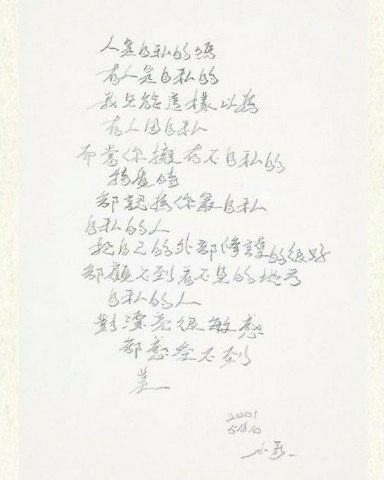 人是自私的嗎
有人是自私的
我只能這樣以為
有人因自私
而當你擁有不自私的
特質時
都認為你最自私
自私的人
把自己的外部傳達的很好
都觀不到看不見的地方
自私的人
對漂亮很敏感
都感受不到
美
2001
小